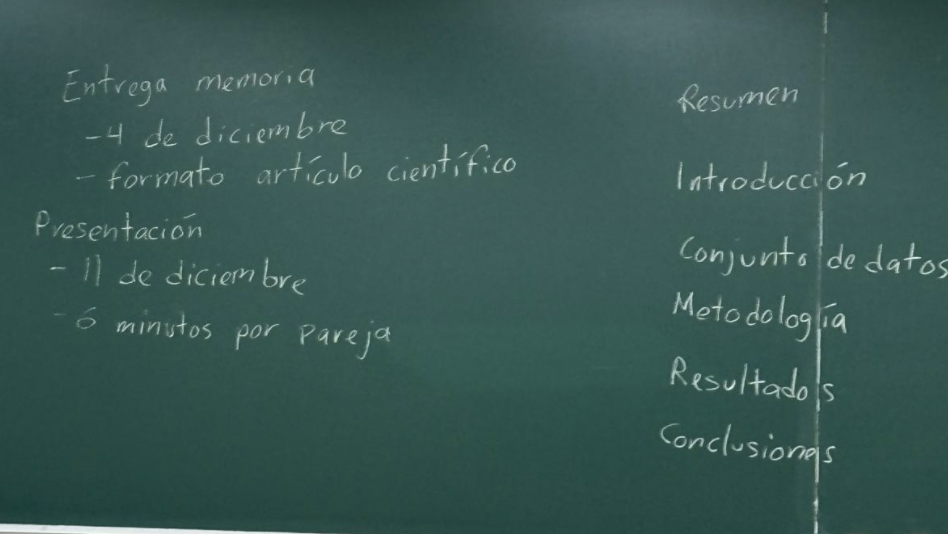 Entrega memoria
- 4 de diciembre
- formato artículo científico
Presentación
- 11 de diciembre
- 6 minutos por pareja
Resumen
Introducción
Conjunto de datos
Metodología
Resultados
Conclusiones